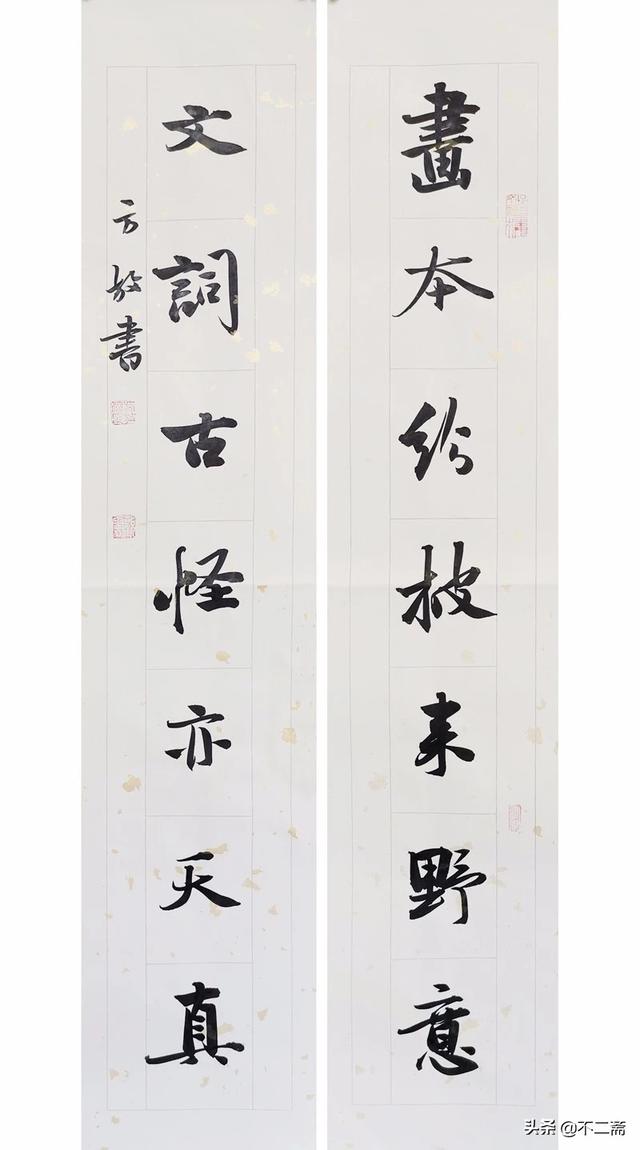 畫本紛披来野意
文詞古怪亦天真
方放書
头条 @不二斋